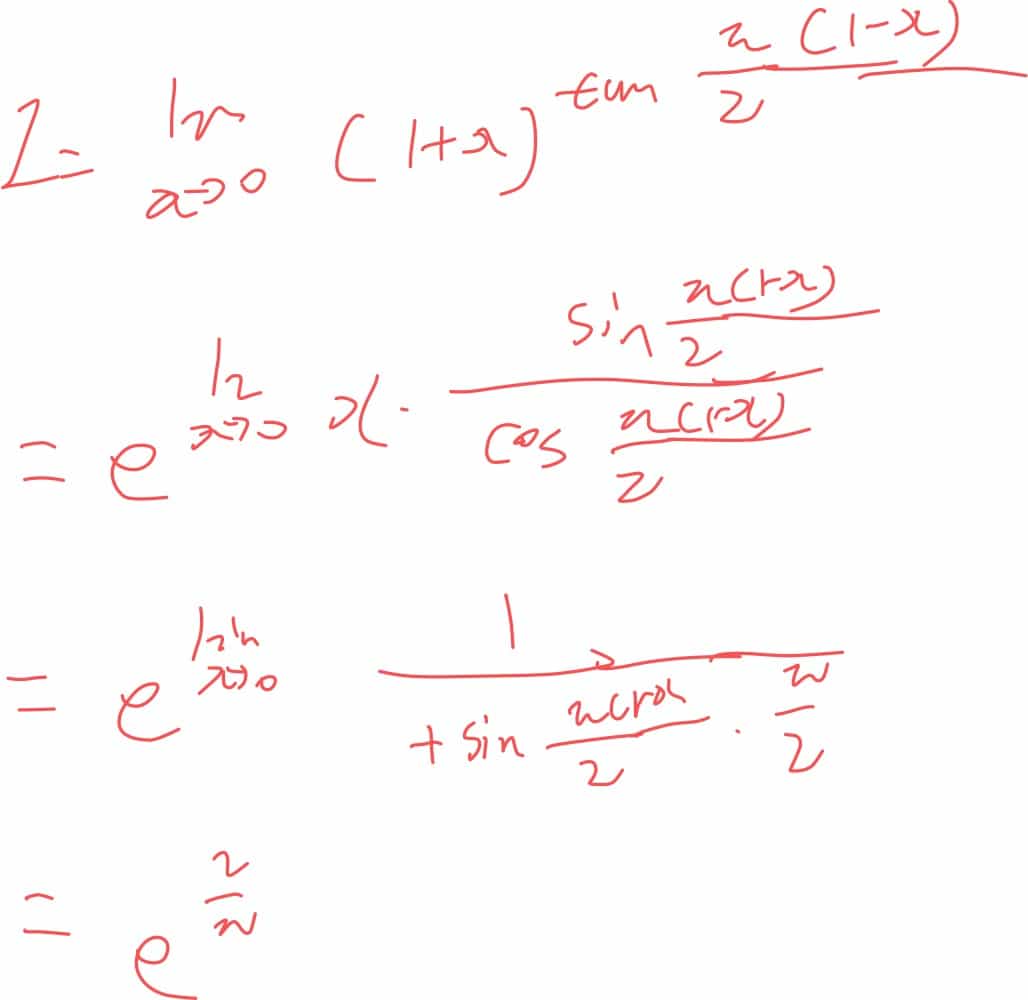 I = lim_{x→0} (1+x)^{tan \frac{π(1-x)}{2}}
= e^{lim_{x→0} x · \frac{sin \frac{π(1-x)}{2}}{cos \frac{π(1-x)}{2}}}
= e^{lim_{x→0} \frac{1}{+ sin \frac{π(1-x)}{2} · \frac{π}{2}}}
= e^{\frac{2}{π}}